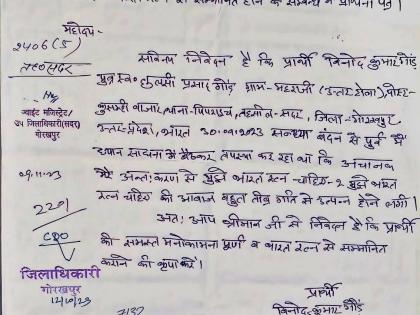 से सम्मानित होने के सम्बन्ध में प्रार्थना पत्र।
महोदय-
2406(5)
सविनय निवेदन है कि प्रार्थी विनोद कुमार गौड़
पुत्र स्व० तुलसी प्रसाद गौड़ ग्राम-महराजी (उत्तर टोला) पोस्ट-
कुसम्ही बाजार, थाना-पिपराइच, तहसील-सदर, जिला-गोरखपुर
उत्तर-प्रदेश, भारत 30.09.2023 सन्ध्या बंदन से पूर्व में
ध्यान साधना में बैठकर तपस्या कर रहा था कि अचानक
मेरे अन्तःकरण से मुझे भारत रत्न चाहिए-2 मुझे भारत
रत्न चाहिए की आवाज बहुत तीव्र गति से उत्पन्न होने लगी।
अतः आप श्रीमान जी से निवेदन है कि प्रार्थी
की समस्त मनोकामना पूर्ण व भारत रत्न से सम्मानित
कराने की कृपा करें।
प्रार्थी
विनोद कुमार गौड़
ज्वाइंट मजिस्ट्रेट/
उप जिलाधिकारी (सदर)
गोरखपुर
2201
CDO
जिलाधिकारी
गोरखपुर